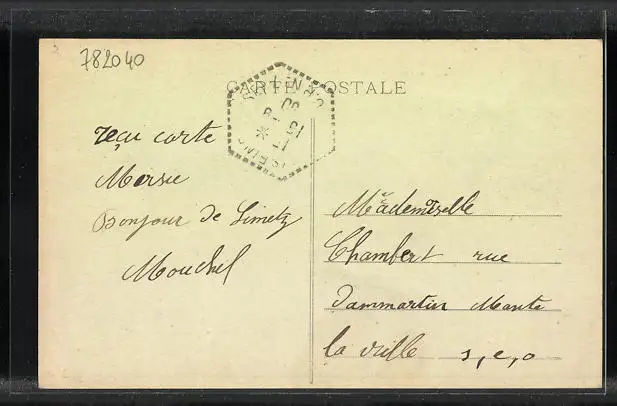 782040
CARTE POSTALE
reçu carte
Mersie
Bonjour de Limetz
Mouchel
Mademoiselle
Chambert rue
Dammartin Mante
la ville s, e, o